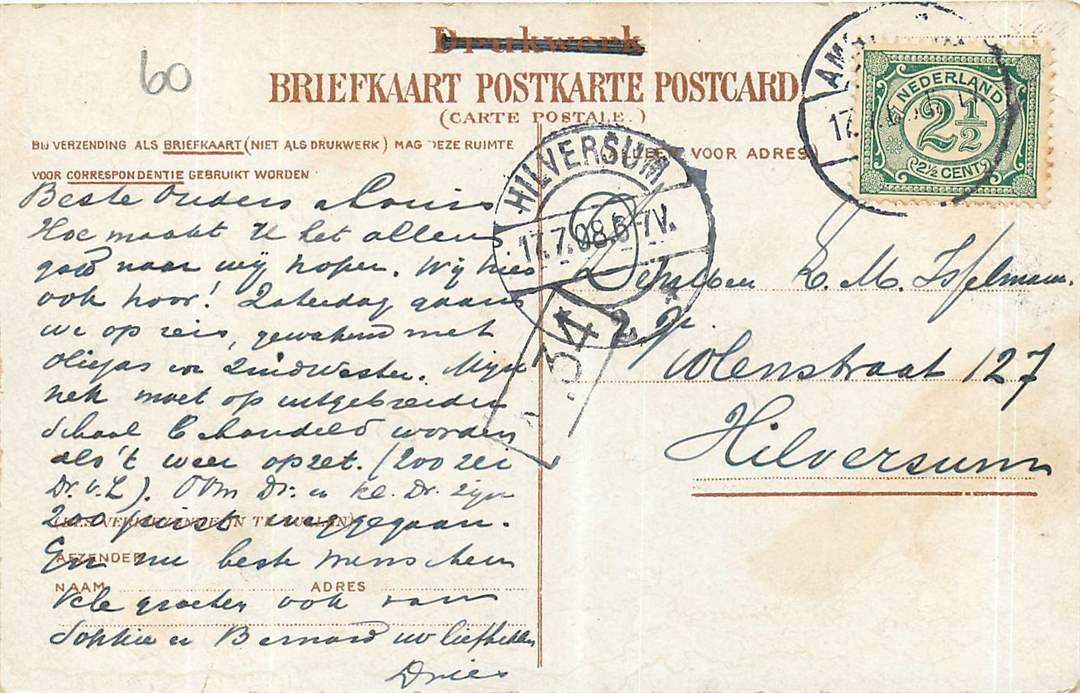 60
Drukwerk
BRIEFKAART POSTKARTE POSTCARD
(CARTE POSTALE.)
BIJ VERZENDING ALS BRIEFKAART (NIET ALS DRUKWERK) MAG DEZE RUIMTE
VOOR CORRESPONDENTIE GEBRUIKT WORDEN
VOOR ADRES)
AMS
17.
NEDERLAND
2½
2½ CENT
HILVERSUM
17.7.08.6-7V.
2
34
Beste Ouders Louis
Hoe maakt U het allen
goed naar wij hopen. Wij hier
ook hoor! Zaterdag gaan
we op reis, gewapend met
oliejas en Zuidwester. Mijn
nek moet op uitgebreiden
schaal behandeld worden
als 't weer opzet. (zoo zei
Dr. v. L). Oom Dr. en kl. Dr. zijn
zoo juist weggegaan.
En nu beste menschen
AFZENDER
NAAM ADRES
Vele groeten ook van
Sophie en Bernard uw liefhebben
Dries
L. M. IJselman.
127
Hilversum